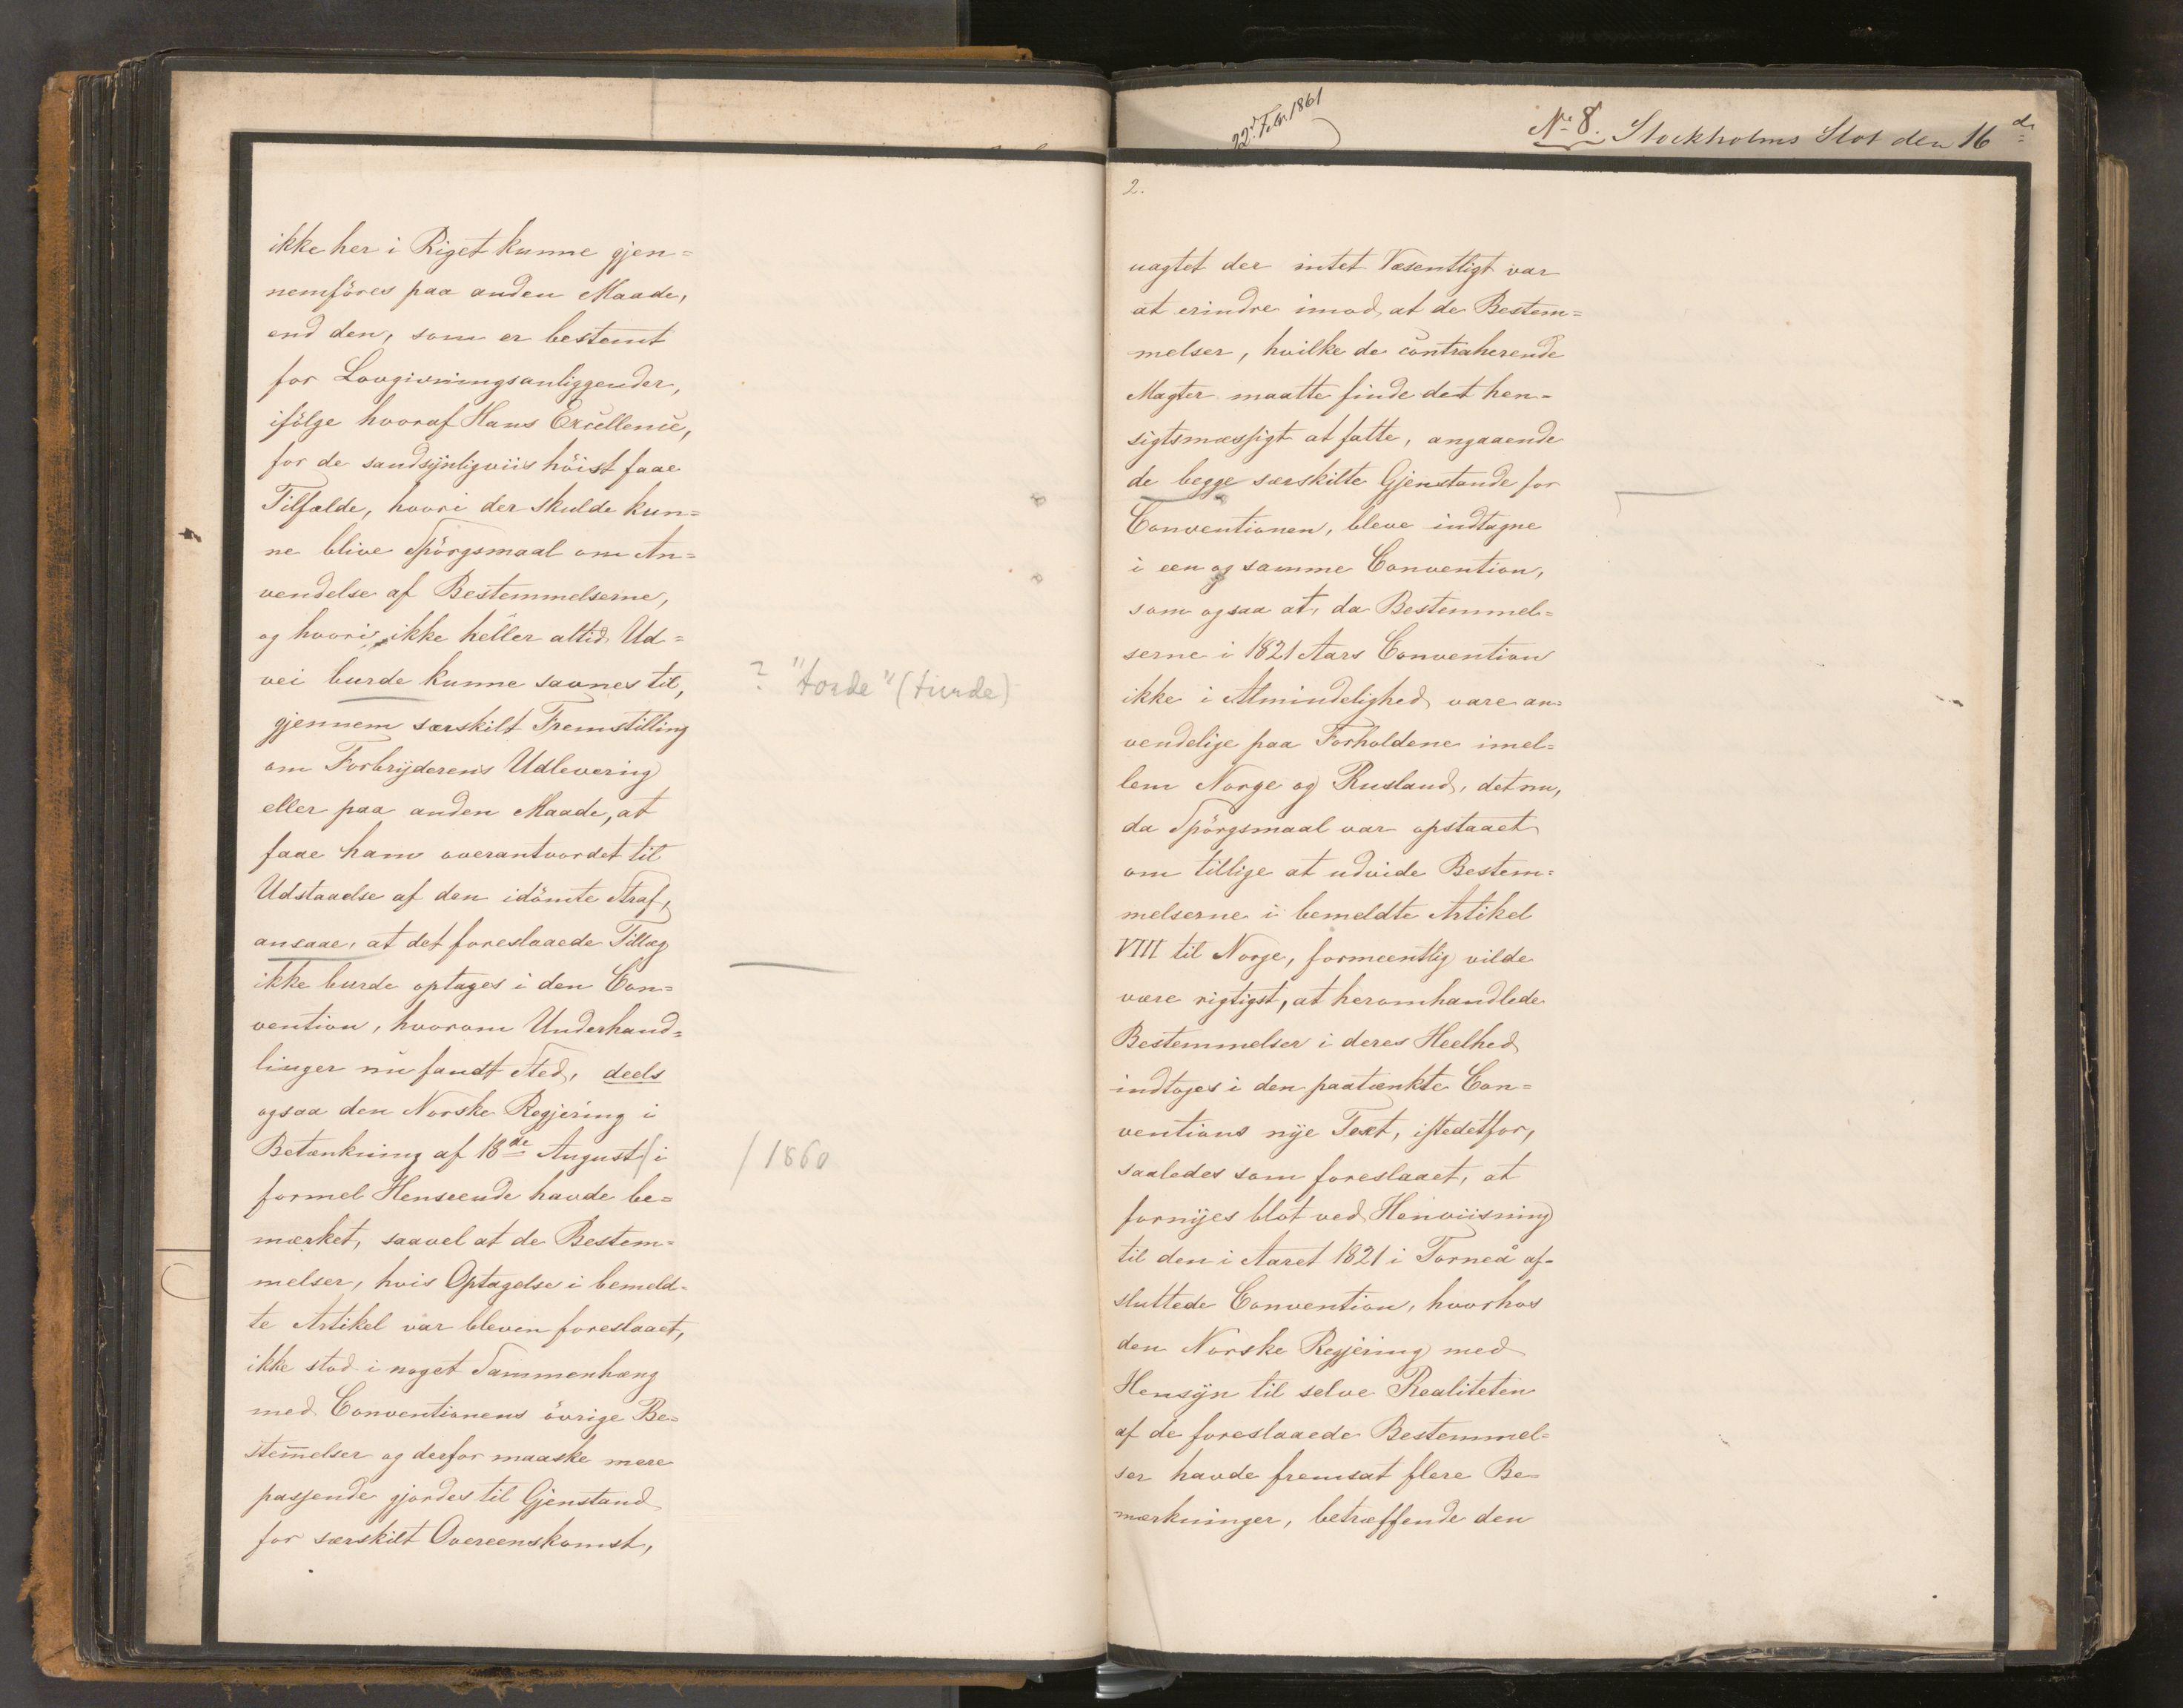 ikke her i Riget kunne gjen=
nemföres paa anden Maade,
end den, som er bestemt
for Lovgivningsanliggender,
ifölge hvoraf Hans Excellence,
for de sandsÿnligviis höist faae
Tilfælde, hvori der skulde kun=
ne blive Spörgsmaal om An=
vendelse af Bestemmelserne,
og hvori ikke heller altid Ud=
vei burde kunne savnes til,
? "torde" (turde)
gjennem særskilt Fremstilling
om Forbrÿderens Udlevering
eller paa anden Maade, at
faae ham overantvordet til
Udstaaelse af den idömte Straf,
ansaae, at det foreslaaede Tillæg
ikke burde optages i den Con=
vention, hvorom Underhand=
linger nu fandt Sted, deels
ogsaa den Norske Regjering i
Betænkning af 18de August / i
/ 1860
formel Henseende havde be=
mærket, saavel at de Bestem=
melser, hvis Optagelse i bemeld=
te Artikel var bleven foreslaaet,
ikke stod i noget Sammenhæng
med Conventionens övrige Be=
stem̅elser og derfor maaske mere
passende gjordes til Gjenstand
for særskilt Overeenskomst,
22d Febr. 1861
No 8. Stockholms Slot den 16de
2.
uagtet der intet Væsentligt var
at erindre imod, at de Bestem=
melser, hvilke de contraherende
Magter maatte finde det hen=
sigtsmæssigt at fatte, angaaende
de begge særskilte Gjenstande for
Conventionen, bleve indtagne
i een og samme Convention,
som ogsaa at, da Bestemmel=
serne i 1821 Aars Convention
ikke i Almindelighed vare an=
vendelige paa Forholdene imel=
lem Norge og Rusland, det nu,
da Spörgsmaal var opstaaet
om tillige at udvide Bestem=
melserne i bemeldte Artikel
VIII til Norge, formeentlig vilde
være rigtigst, at heromhandlede
Bestemmelser i deres Heelhed
indtoges i den paatænkte Con=
ventions nÿe Text, istedetfor,
saaledes som foreslaaet, at
fornÿes blot ved Henviisning
til den i Aaret 1821 i Torneå af=
sluttede Convention, hvorhos
den Norske Regjering med
Hensÿn til selve Realiteten
af de foreslaaede Bestemmel=
ser havde fremsat flere Be=
mærkninger, betræffende den